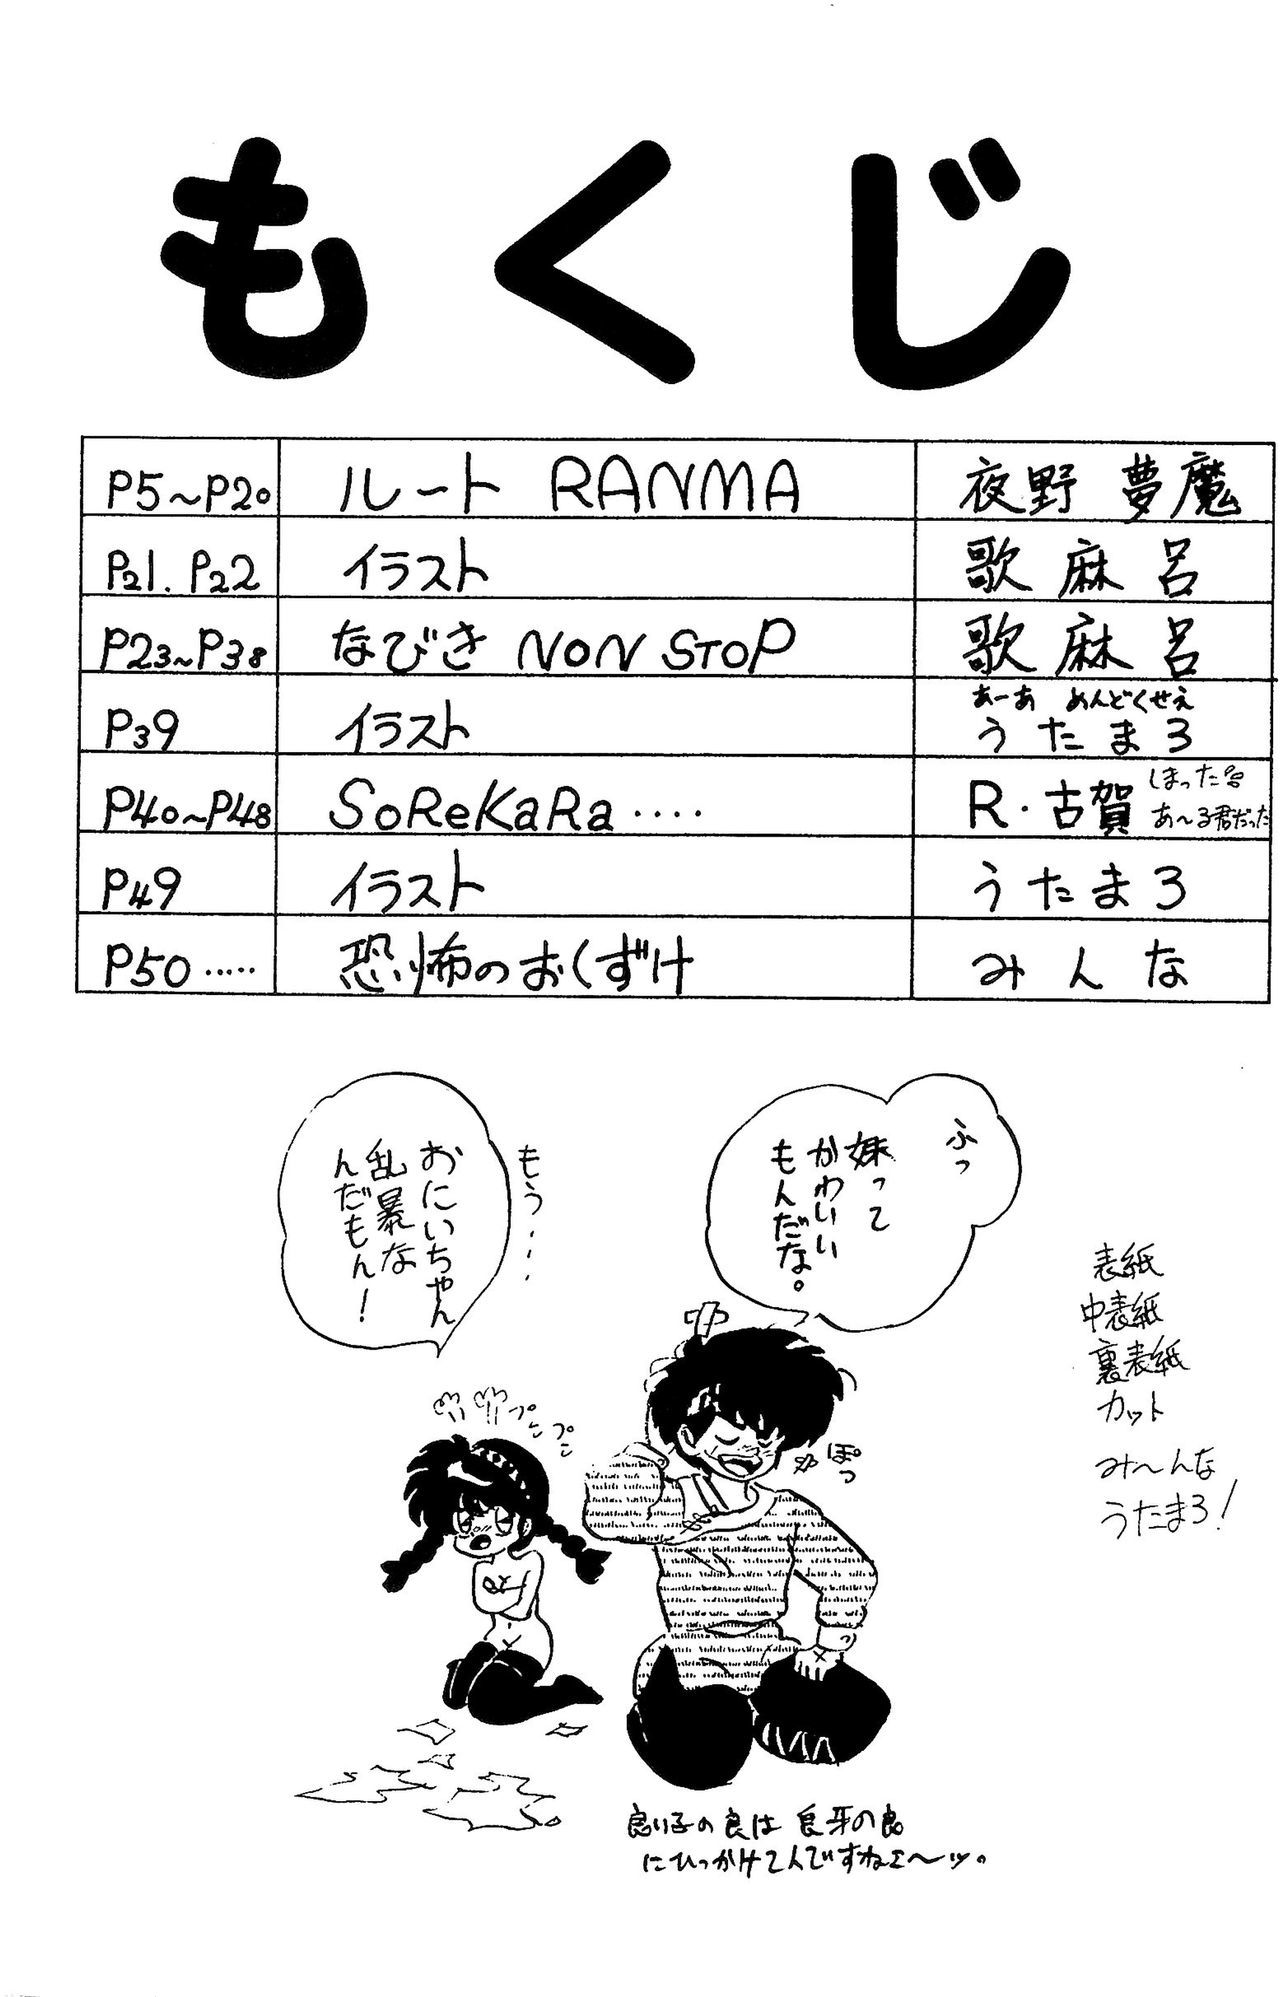 もくじ
P5~P20 ルート RANMA 夜野 夢魔
P21. P22 イラスト 歌麻呂
P23~P38 なびき NON STOP 歌麻呂
あーあ めんどくせえ
P39 イラスト うたまろ
しまった
P40~P48 SoReKaRa‥‥ R・古賀 あ〜る君だった
P49 イラスト うたまろ
P50‥‥‥ 恐怖のおくずけ みんな
ふっ
妹って
かわいい
もんだな。
もう‥‥
おにいちゃん
乱暴な
んだもん!
表紙
中表紙
裏表紙
カット
み〜んな
うたまろ!
プンプン
ぽっ
良い子の良は 良牙の良
にひっかけてんですねェ〜ッ。